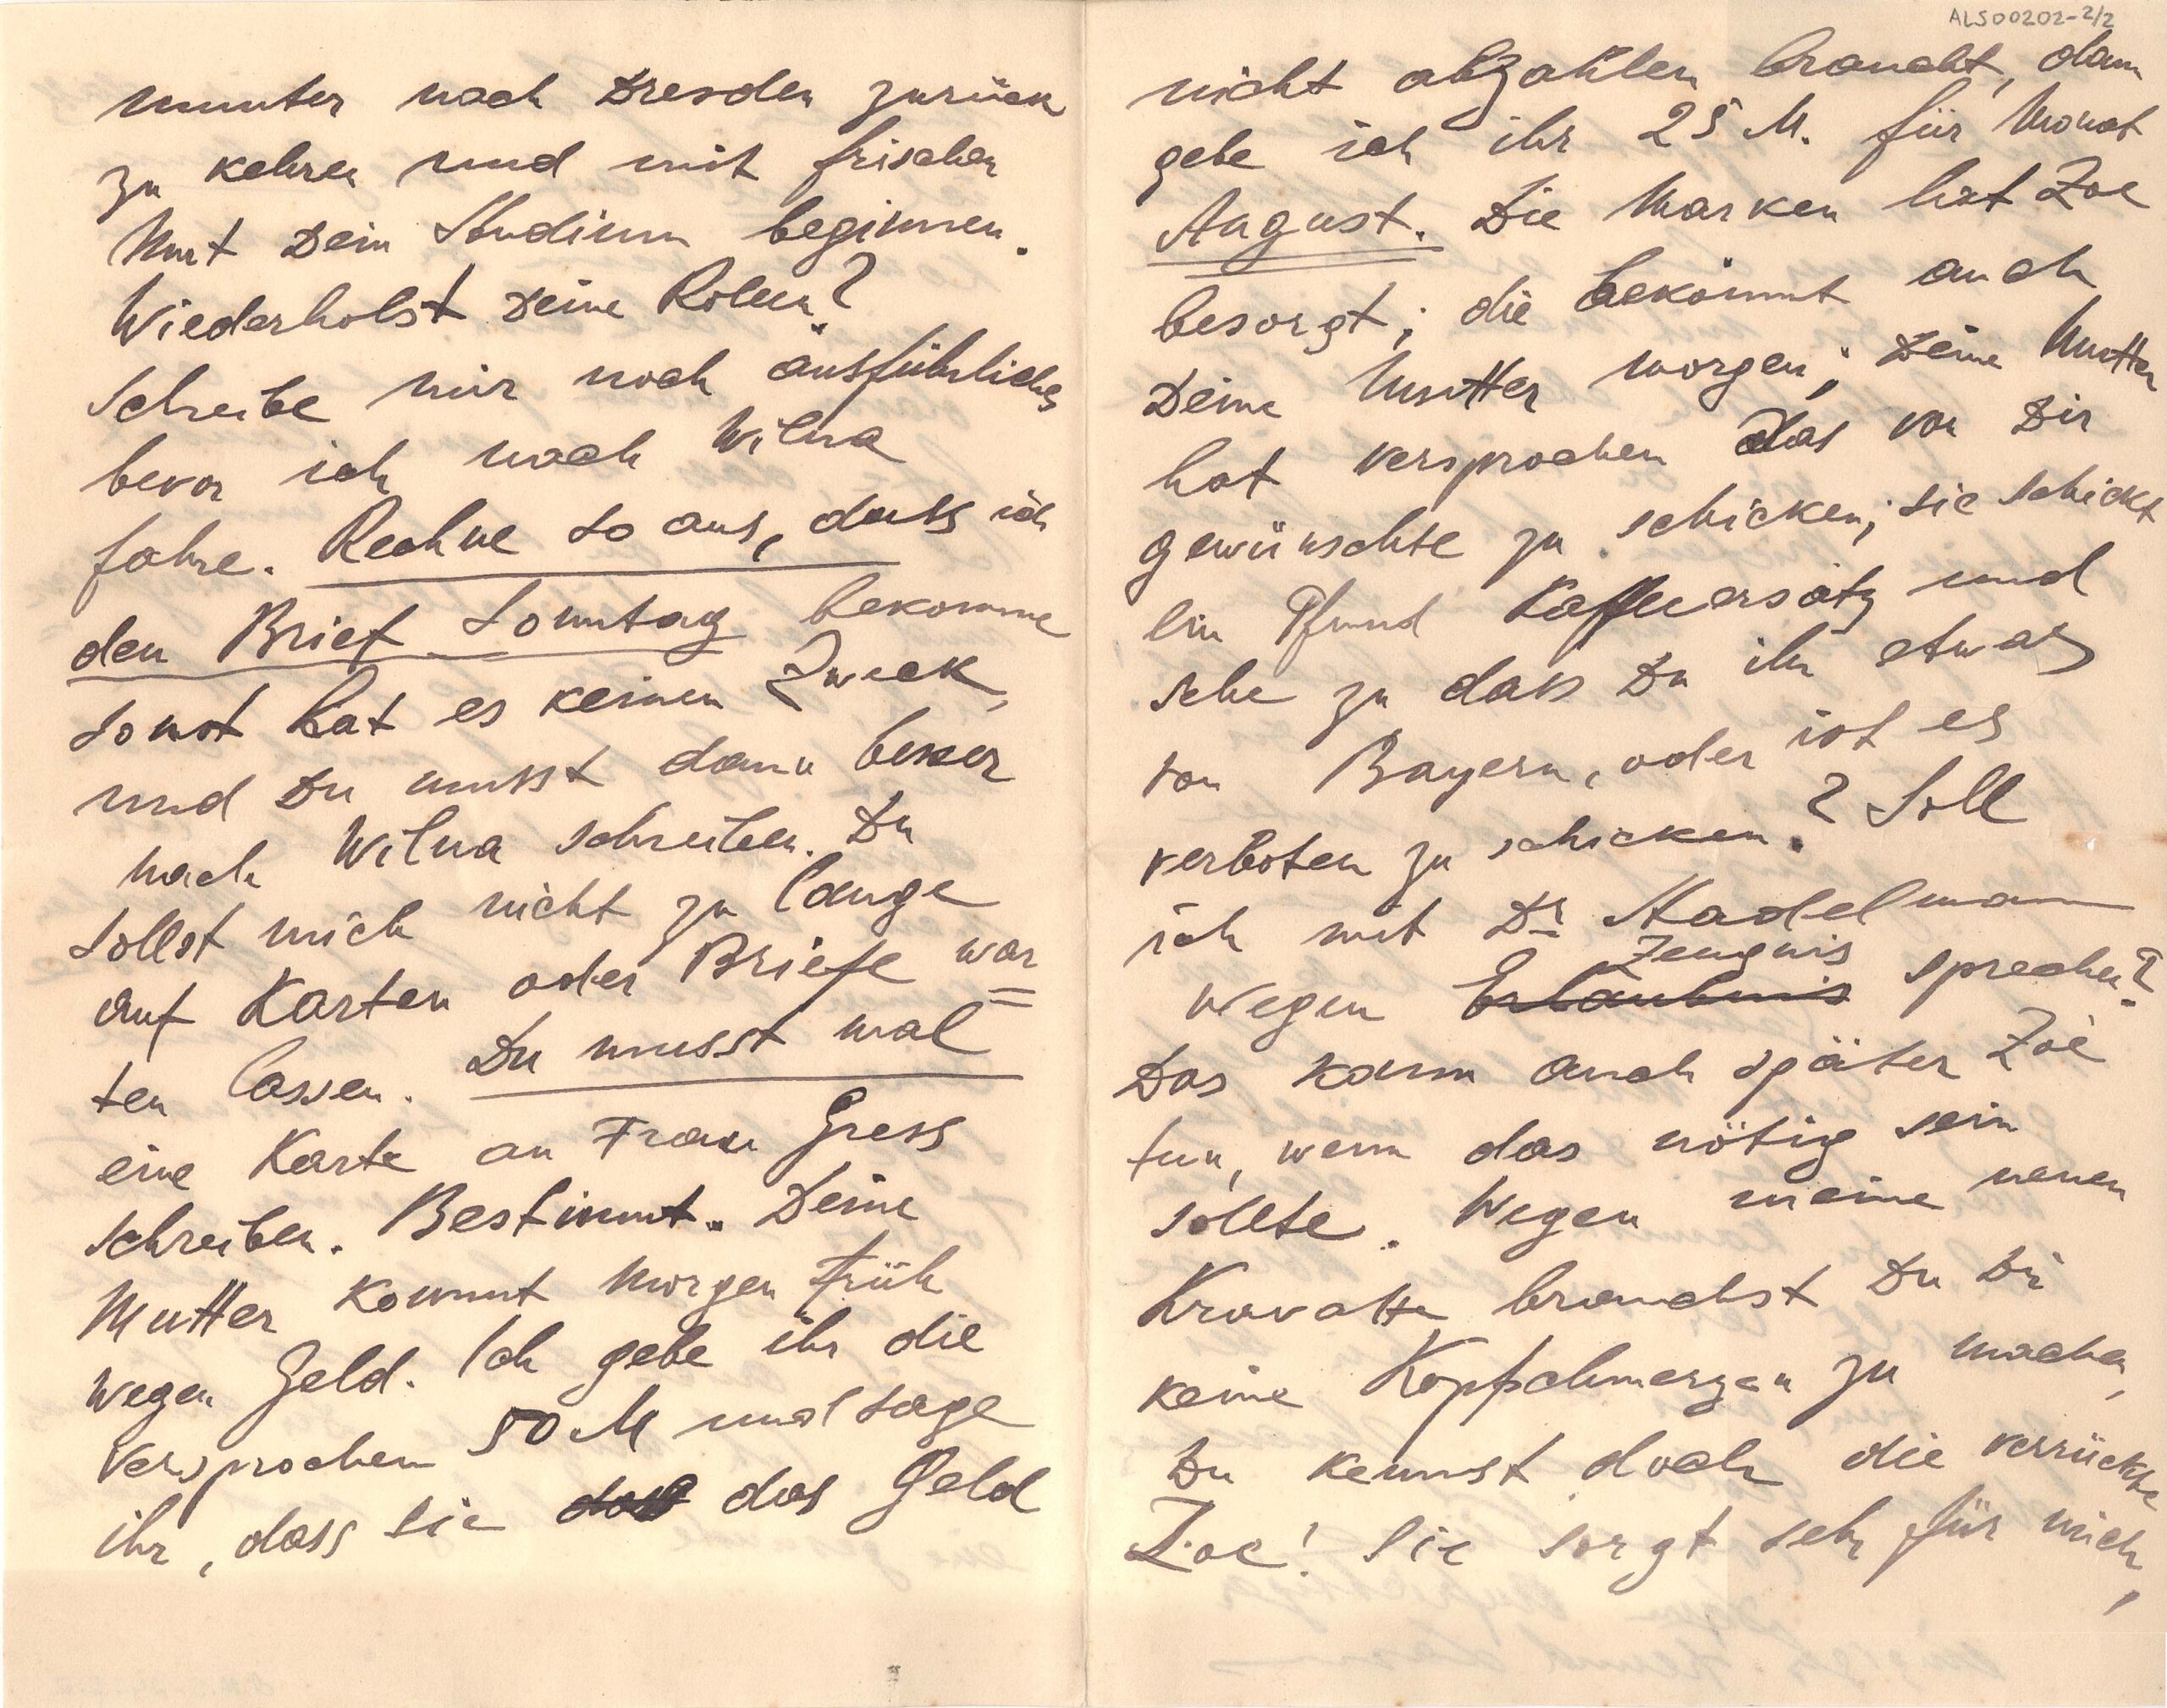 munter nach Dresden zurück
zu kehren und mit frischen
Mut Dein Studium beginnen.
Wiederholst Deine Rolen?
Schreibe mir noch ausführliches
bevor ich nach Wilna
fahre. Rechne so aus, dass ich
den Brief Sonntag bekomme
sonst hat es keinen Zweck,
und Du musst dann besser
nach Wilna schreiben. Du
sollst mich nicht zu lange
auf Karten oder Briefe war=
ten lassen. Du musst mal
eine Karte an Frau Gress
schreiben. Bestimmt. Deine
Mutter kommt Morgen früh
wegen Geld. Ich gebe ihr die
versprochen 50 M und sage
ihr, dass sie das Geld
ALS00202-2/2
nicht abzahlen braucht, dann
gebe ich ihr 25 M. für Monat
August. Die Marken hat Zoe
besorgt; die bekommt auch
Deine Mutter morgen; Deine Mutter
hat versprochen das von Dir
gewünschte zu schicken; sie schickt
ein Pfund Kaffeersatz und
sehe zu dass Du ihr etwas
von Bayern, oder ist es
verboten zu schicken.? Soll
ich mit Dr Stadelmann
wegen Erlaubnis Zeugnis sprechen?
Das kann auch später Zoë
tun, wenn das nötig sein
sollte. Wegen meine neuen
Kravatte brauchst Du Dir
keine Kopfschmerzen zu machen,
Du kennst doch die verrückte
Zoe! Sie sorgt sehr für mich,